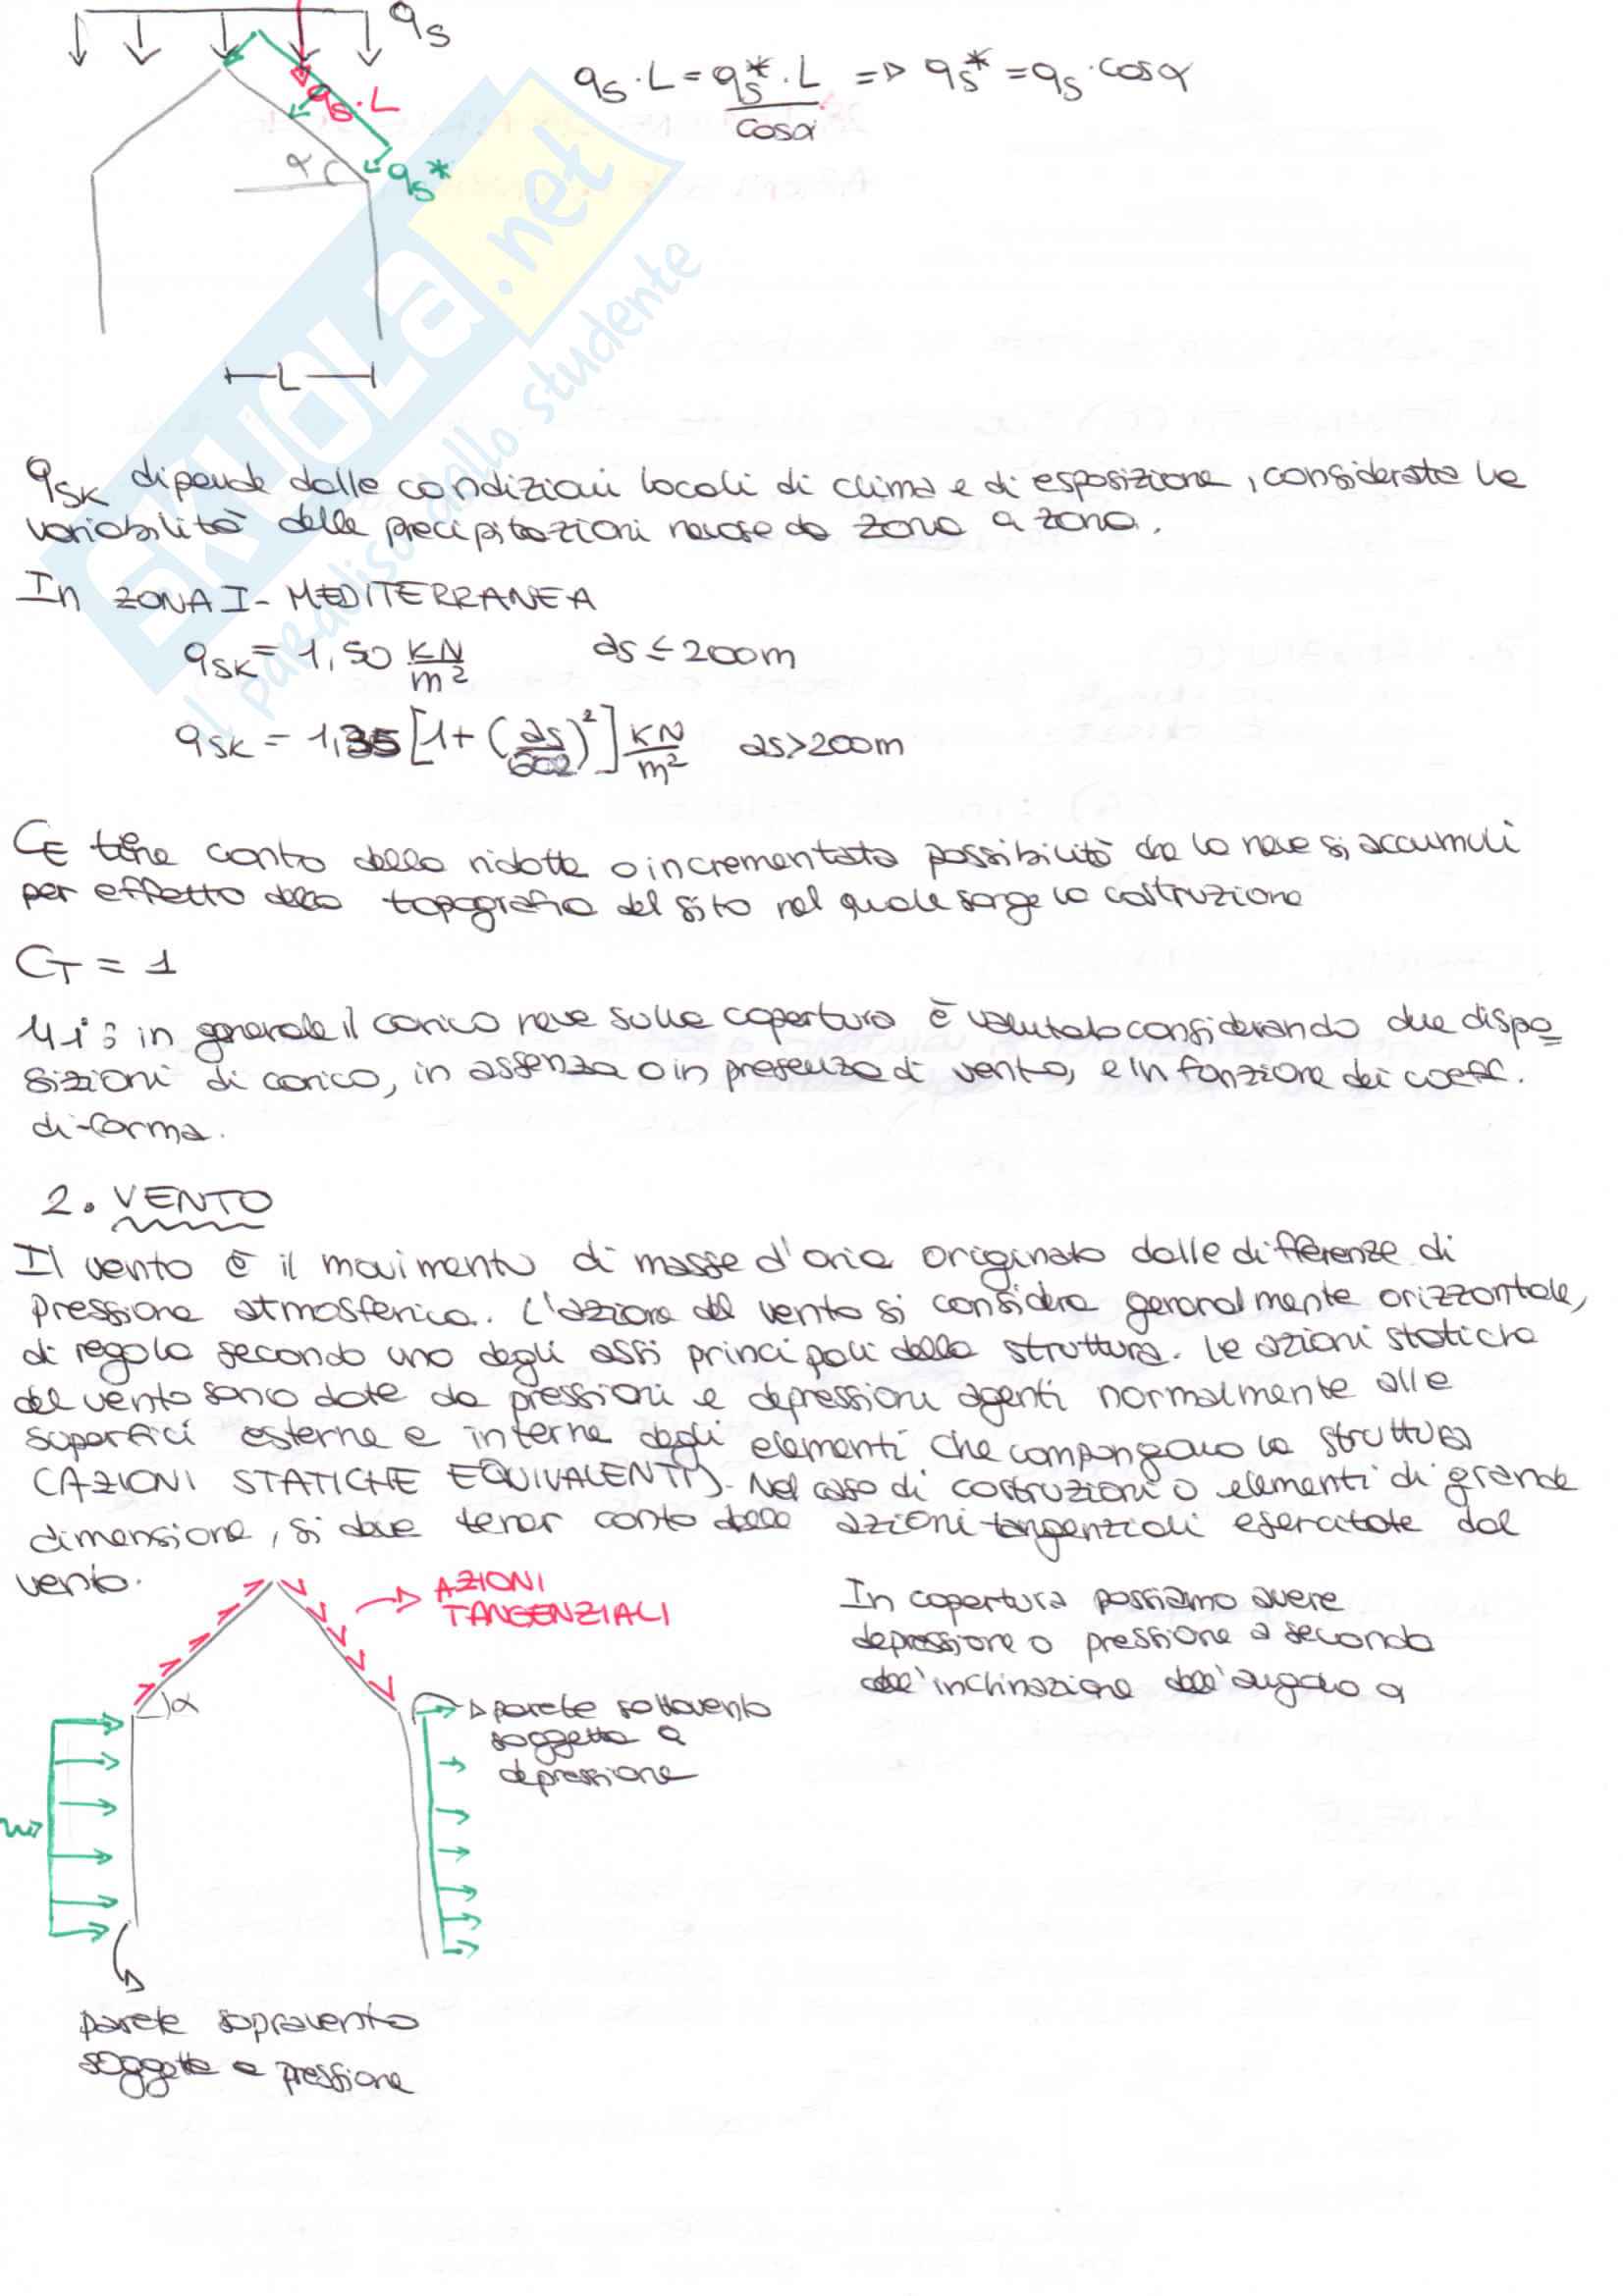 qs
qs · L = qs* · L / cosα => qs* = qs · cosα
qs · L
α
qs*
L
SKUOLA.net
il paradiso dello studente
qsk dipende dalle condizioni locali di clima e di esposizione, considerata la
variabilità delle precipitazioni nevose da zona a zona.
In ZONA I - MEDITERRANEA
qsk = 1,50 KN/m² as ≤ 200m
qsk = 1,35 [1 + (as/602)²] KN/m² as > 200m
CE tiene conto della ridotta o incrementata possibilità che la neve si accumuli
per effetto della topografia del sito nel quale sorge la costruzione
CT = 1
μi: in generale il carico neve sulla copertura è valutato considerando due dispo
sizioni di carico, in assenza o in presenza di vento, e in funzione dei coeff.
di forma.
2. VENTO
Il vento è il movimento di masse d'aria originato dalle differenze di
pressione atmosferica. L'azione del vento si considera generalmente orizzontale,
di regola secondo uno degli assi principali della struttura. Le azioni statiche
del vento sono date da pressioni e depressioni agenti normalmente alle
superfici esterne e interne degli elementi che compongono la struttura
(AZIONI STATICHE EQUIVALENTI). Nel caso di costruzioni o elementi di grande
dimensione, si deve tener conto delle azioni tangenziali esercitate dal
vento.
AZIONI
TANGENZIALI
In copertura possiamo avere
depressione o pressione a seconda
dell'inclinazione dell'angolo α
α
parete sottovento
soggetta a
depressione
parete sopravento
soggetta a pressione